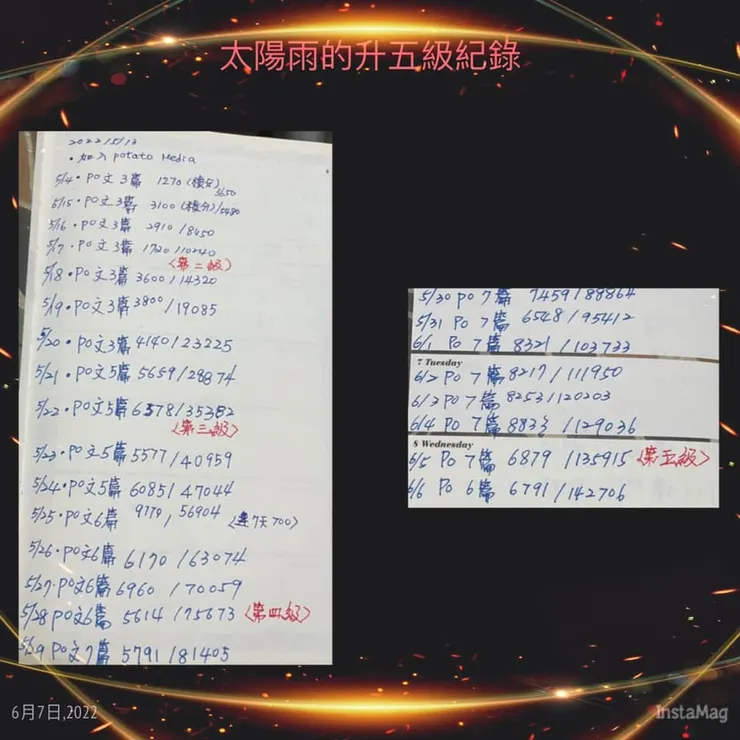 太陽雨的升五級紀錄
2022/5/13
•加入potato Media
5/14•PO文3篇 1270(積分)/3650
5/15•PO文3篇 3100(積分)/5480
5/16•PO文3篇 2910/8450
5/17•PO文3篇 1720/10240
〈第二級〉
5/18•PO文3篇 3600/14320
5/19•PO文3篇 3800/19085
5/20•PO文3篇 4140/23225
5/21•PO文5篇 5659/28874
5/22•PO文5篇 6578/35382
〈第三級〉
5/23•PO文5篇 5577/40959
5/24•PO文5篇 6085/47044
5/25•PO文6篇 9779/56904 〈連7天700〉
5/26•PO文6篇 6170/63074
5/27•PO文6篇 6960/70059
5/28 PO文6篇 5614/75673 〈第四級〉
5/29 PO文7篇 5791/81405
5/30 PO 7篇 7459/88864
5/31 PO 7篇 6548/95412
6/1 PO 7篇 8321/103733
7 Tuesday
6/2 PO 7篇 8217/111950
6/3 PO 7篇 8253/120203
6/4 PO 7篇 8833/129036
8 Wednesday
6/5 PO 7篇 6879/135915 〈第五級〉
6/6 PO 6篇 6791/142706
6月7日,2022
InstaMag